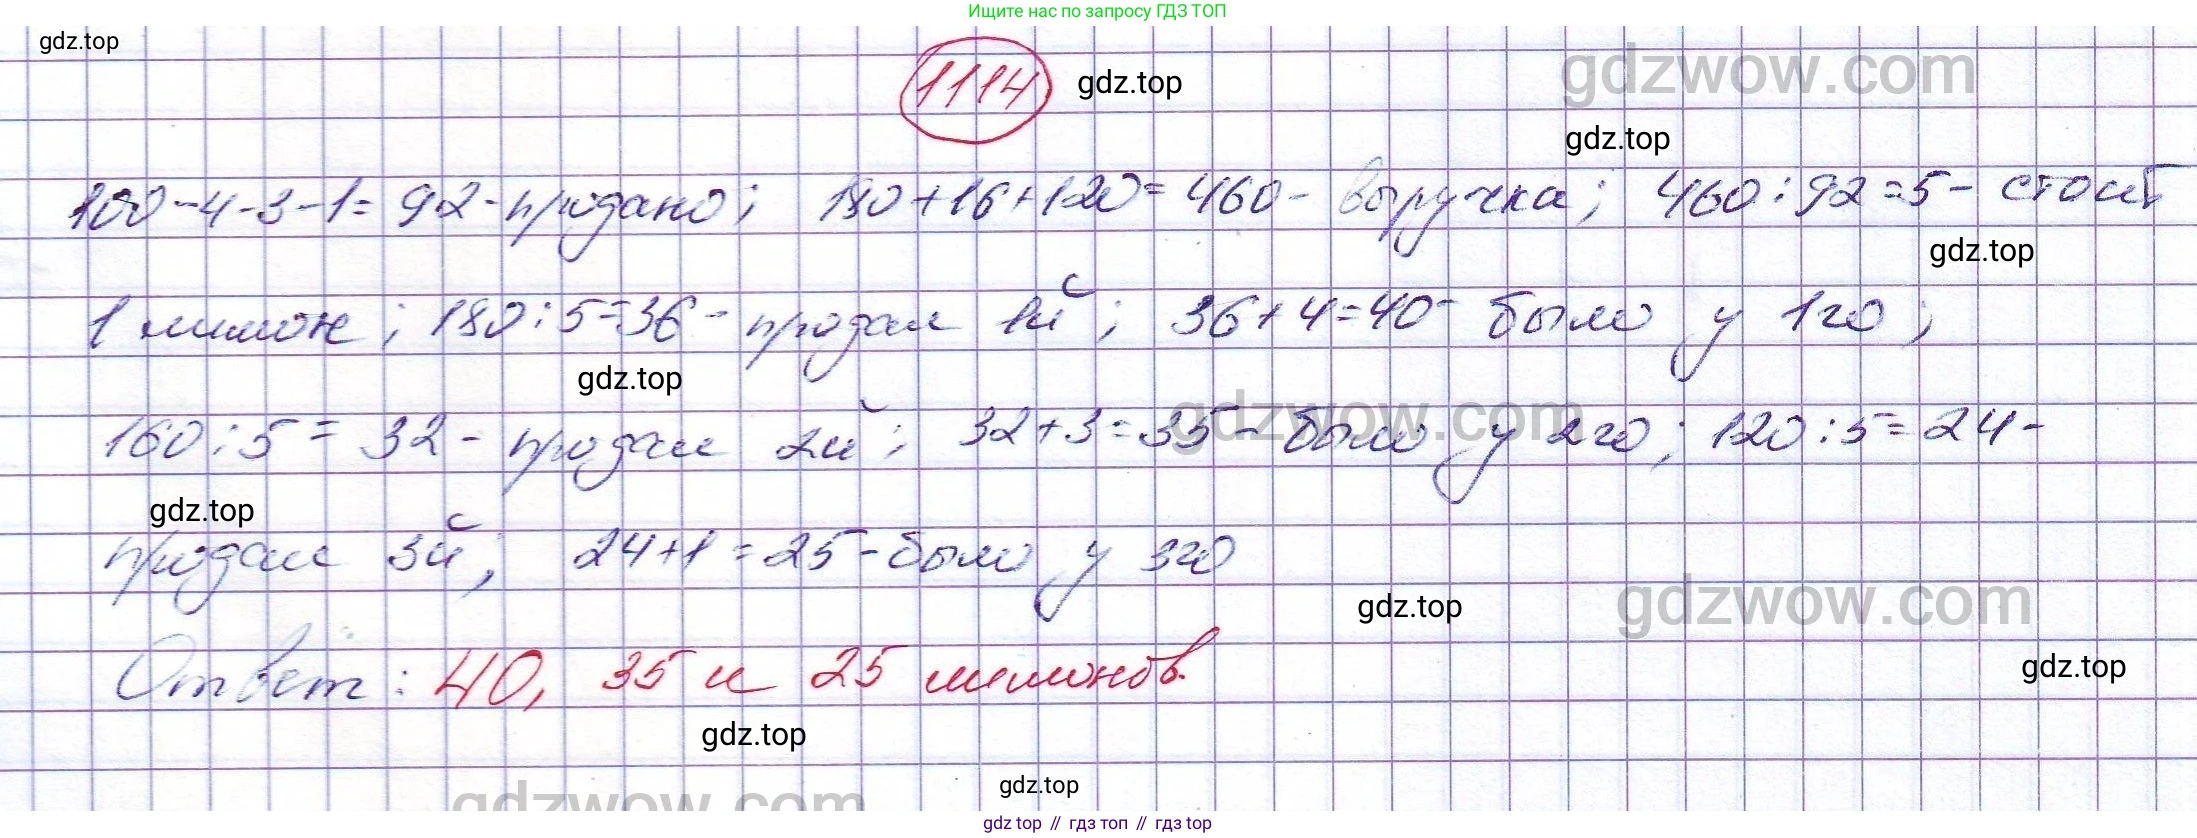 Ищите нас по запросу ГДЗ ТОП
gdz.top
1114 gdz.top
gdzwow.com
gdz.top
100-4-3-1=92-продано; 180+16+120=460- выручка; 460:92=5- стоит
gdz.top
1 лимон; 180:5=36- продал 1й; 36+4=40- было у 1го;
gdz.top
gdzwow.com
160:5=32- продал 2й; 32+3=35- было у 2го; 120:5=24-
gdz.top
продал 3й; 24+1=25- было у 3го
gdz.top
gdzwow.com
Ответ: 40, 35 и 25 лимонов.
gdz.top
gdz.top
gdz.top
gdzwow.com
gdz top // гдз топ // гдз top